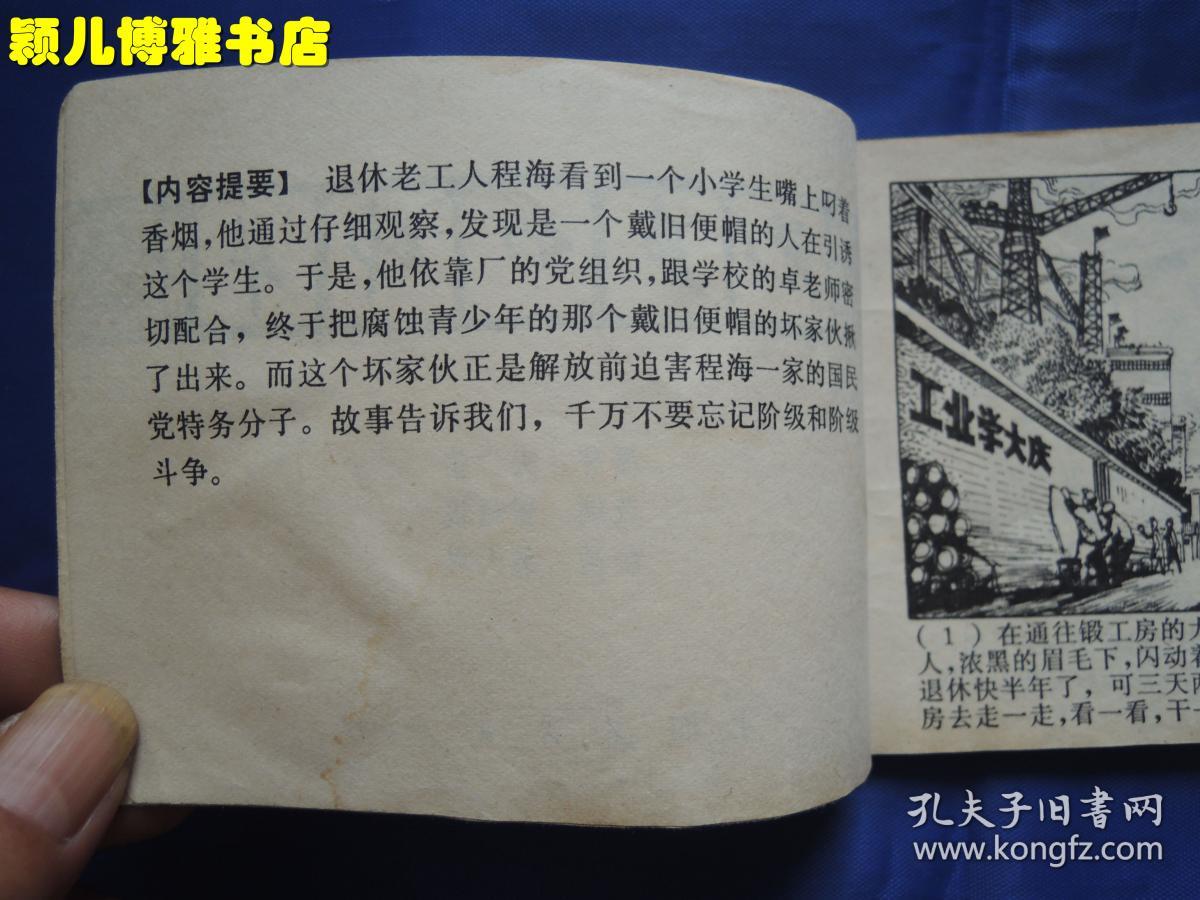 颖儿博雅书店
【内容提要】 退休老工人程海看到一个小学生嘴上叼着
香烟，他通过仔细观察，发现是一个戴旧便帽的人在引诱
这个学生。于是，他依靠厂的党组织，跟学校的卓老师密
切配合，终于把腐蚀青少年的那个戴旧便帽的坏家伙揪
了出来。而这个坏家伙正是解放前迫害程海一家的国民
党特务分子。故事告诉我们，千万不要忘记阶级和阶级
斗争。
工业学大庆
（1）在通往锻工房的大
人，浓黑的眉毛下，闪动着
退休快半年了，可三天两
房去走一走，看一看，干一
孔夫子旧書网
www.kongfz.com